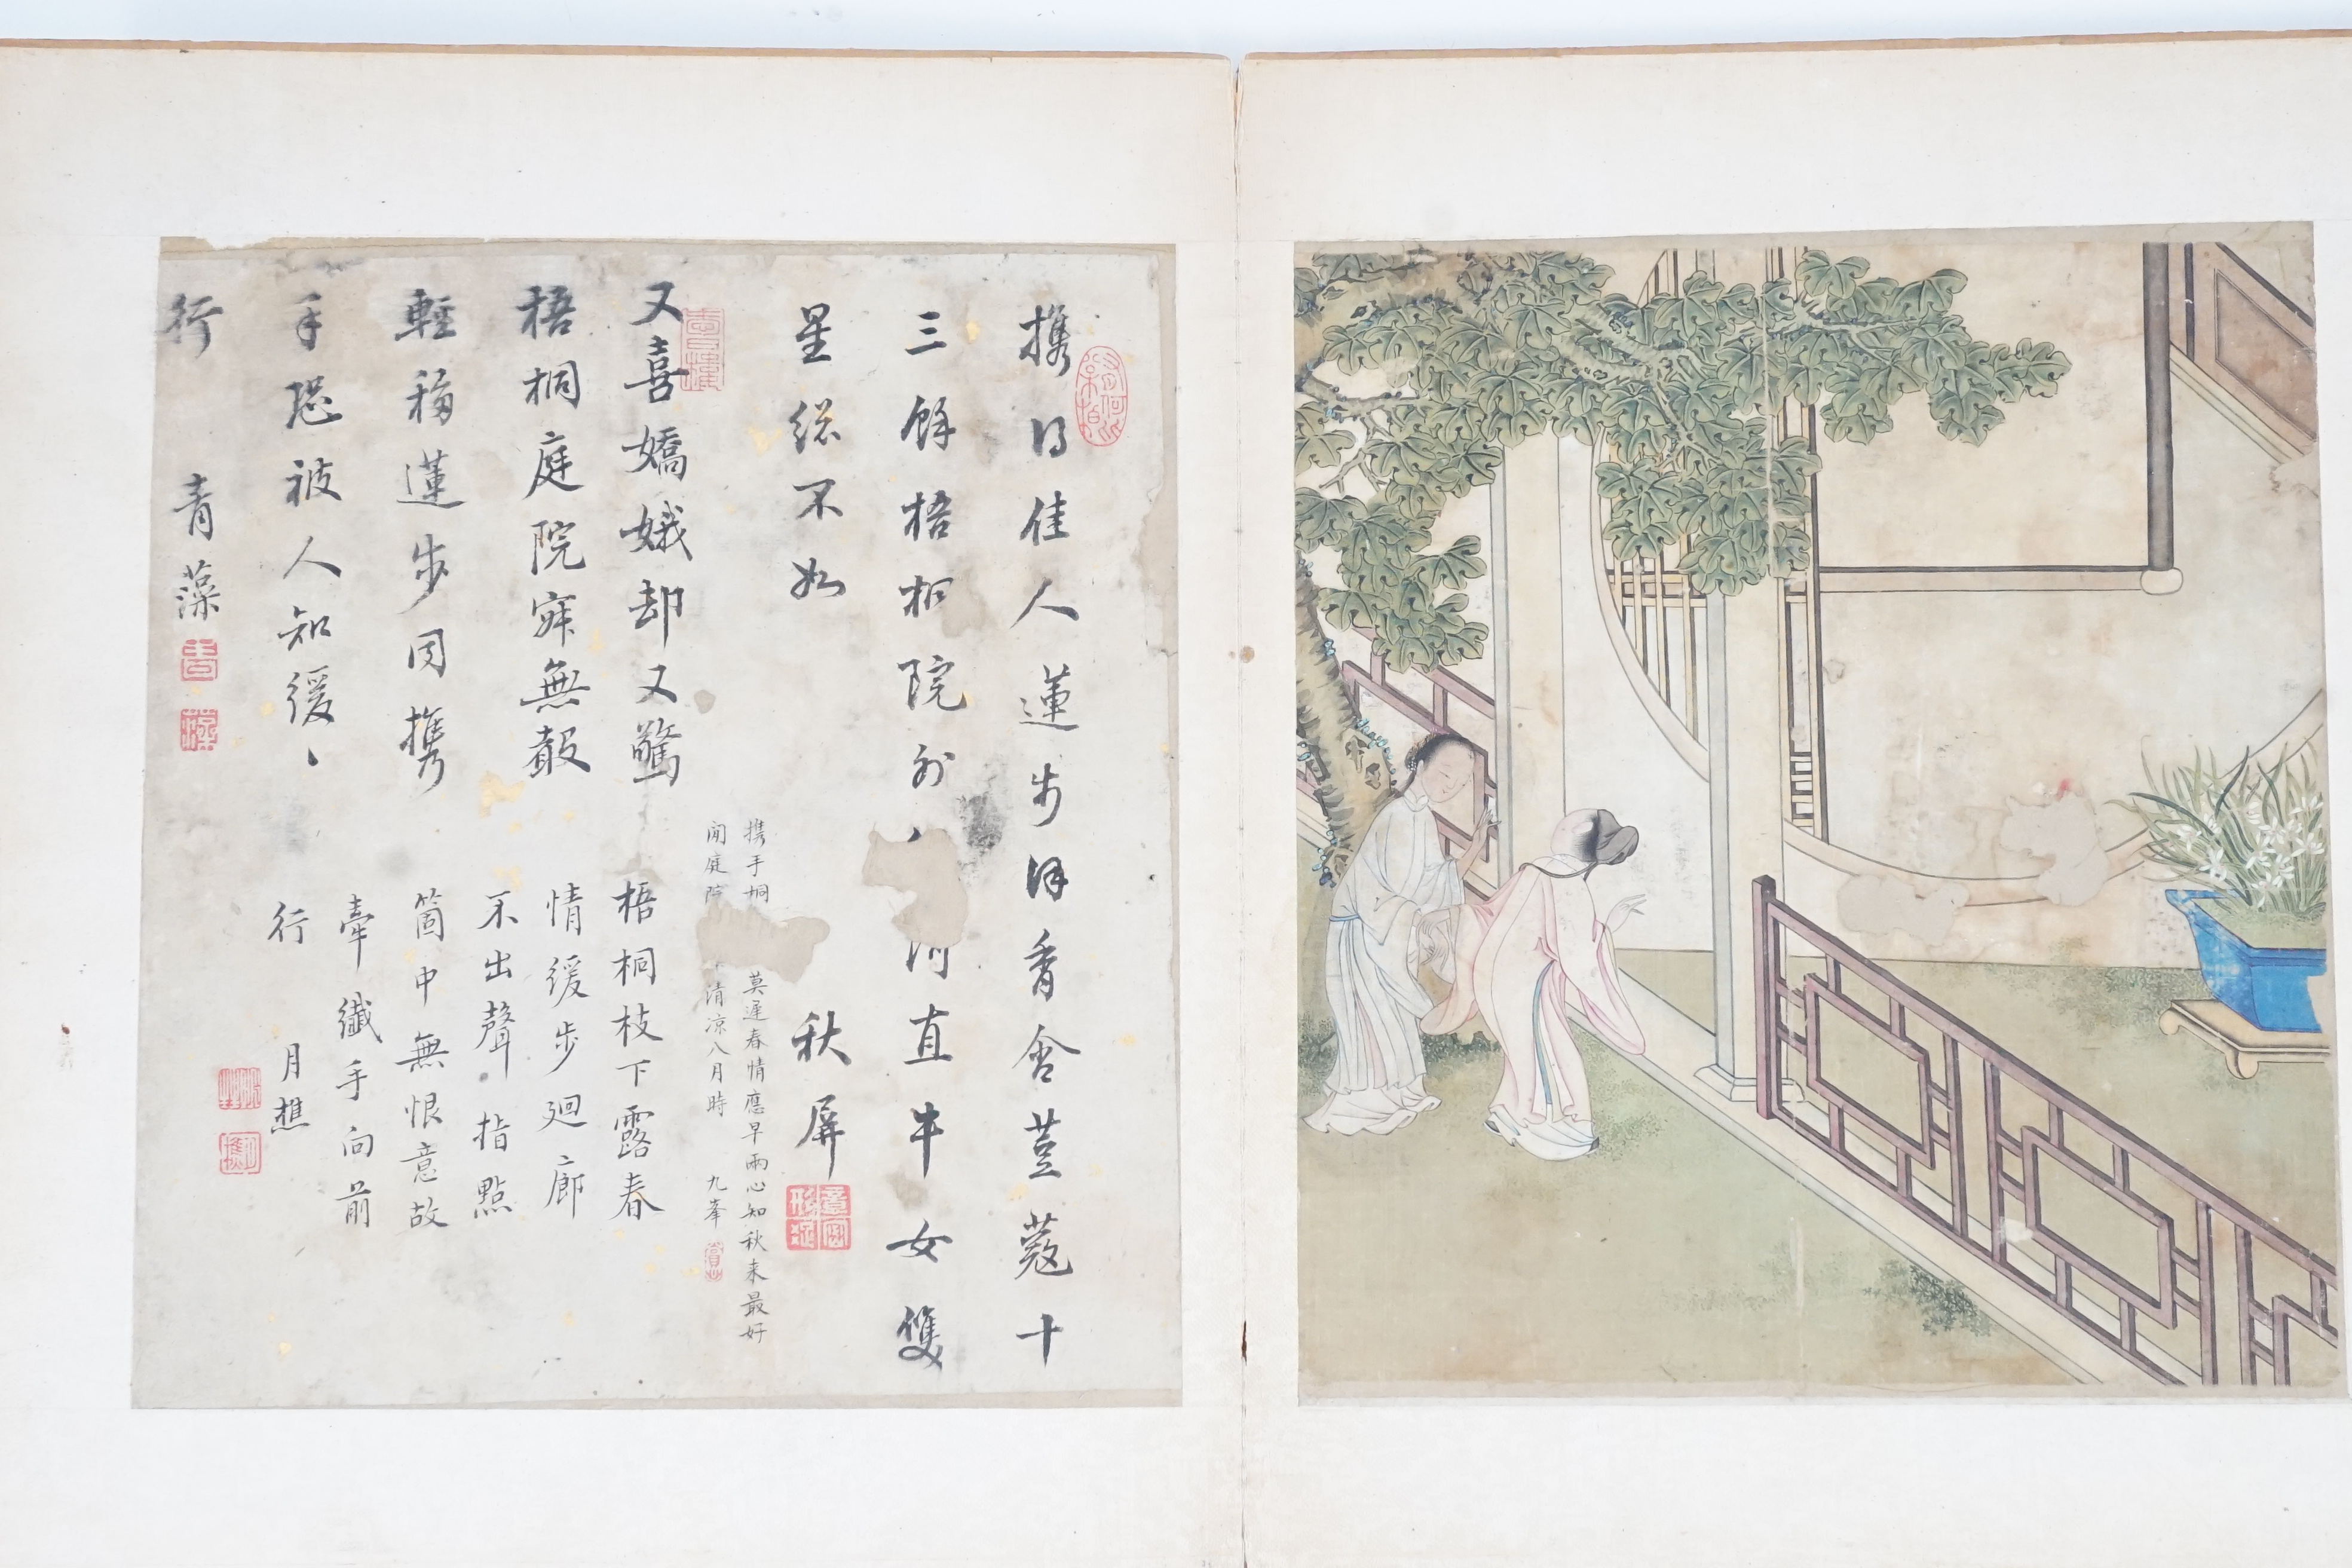 携得佳人蓮步
香含荳蔻十
三餘梧桐院
直牛女雙
星總不如
秋屏
携手桐
莫遲春情應早兩心知秋來最好
閒庭院
清凉八月時
九峯
又喜嬌娥却又驚
梧桐庭院寂無聲
輕移蓮步同携
手恐被人知緩〻
行
青藻
梧桐枝下露春
情緩步迴廊
不出聲指點
箇中無恨意故
牽纖手向前
行
月樵